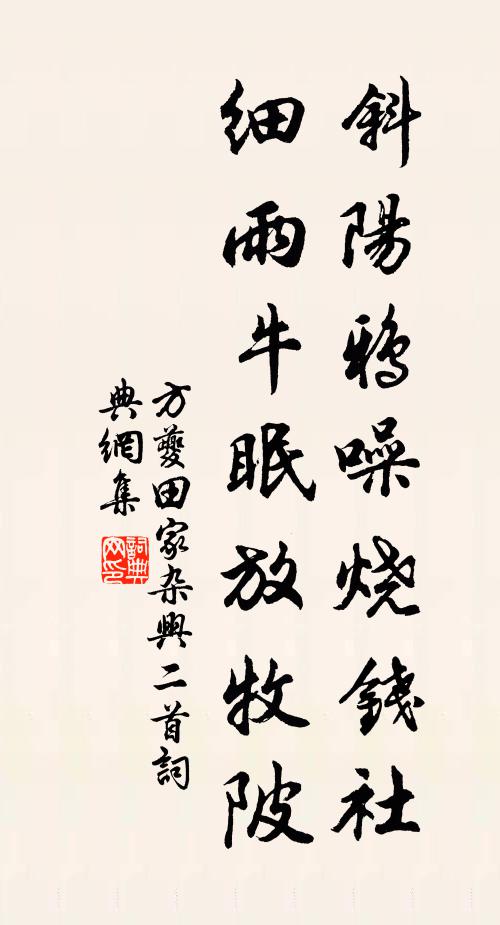 斜陽鴉噪燒錢社
細雨牛眠放牧陂
方夔田家杂興二首詞
典網集
詞典網印